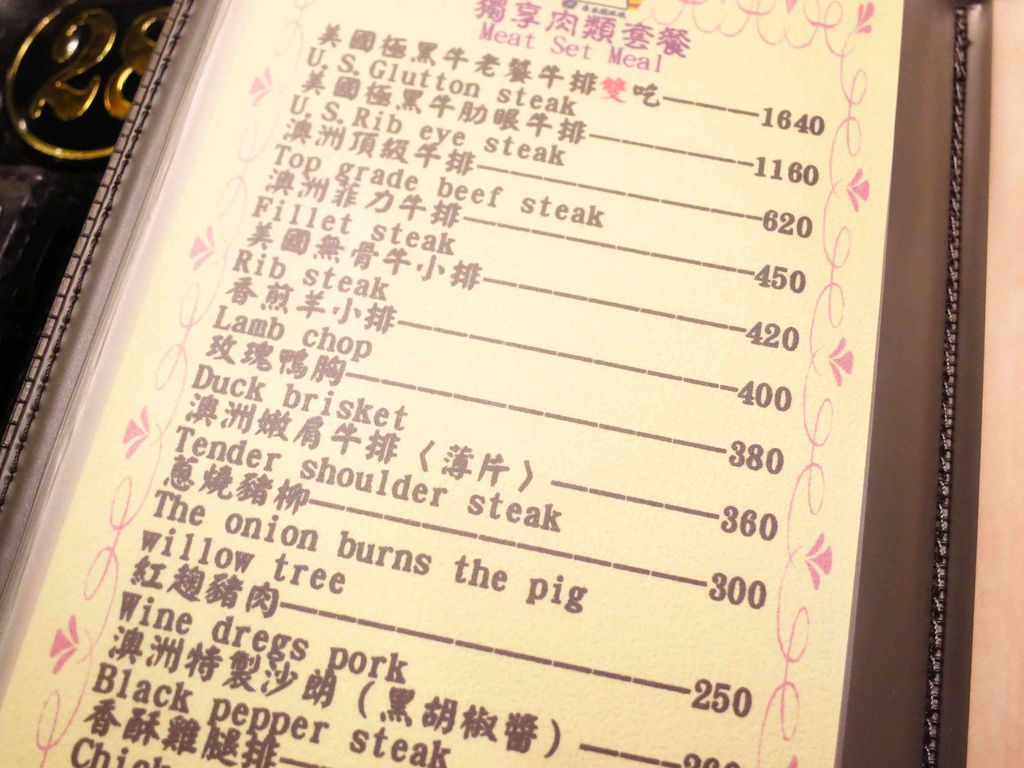 28
獨享肉類套餐
Meat Set Meal
美國極黑牛老饕牛排雙吃————1640
U.S.Glutton steak
美國極黑牛肋眼牛排————1160
U.S.Rib eye steak
澳洲頂級牛排————620
Top grade beef steak
澳洲菲力牛排————450
Fillet steak
美國無骨牛小排————420
Rib steak
香煎羊小排————400
Lamb chop
玫瑰鴨胸————380
Duck brisket
澳洲嫩肩牛排〈薄片〉————360
Tender shoulder steak
蔥燒豬柳————300
The onion burns the pig
willow tree
紅麴豬肉————250
Wine dregs pork
澳洲特製沙朗(黑胡椒醬)————
Black pepper steak
香酥雞腿排————